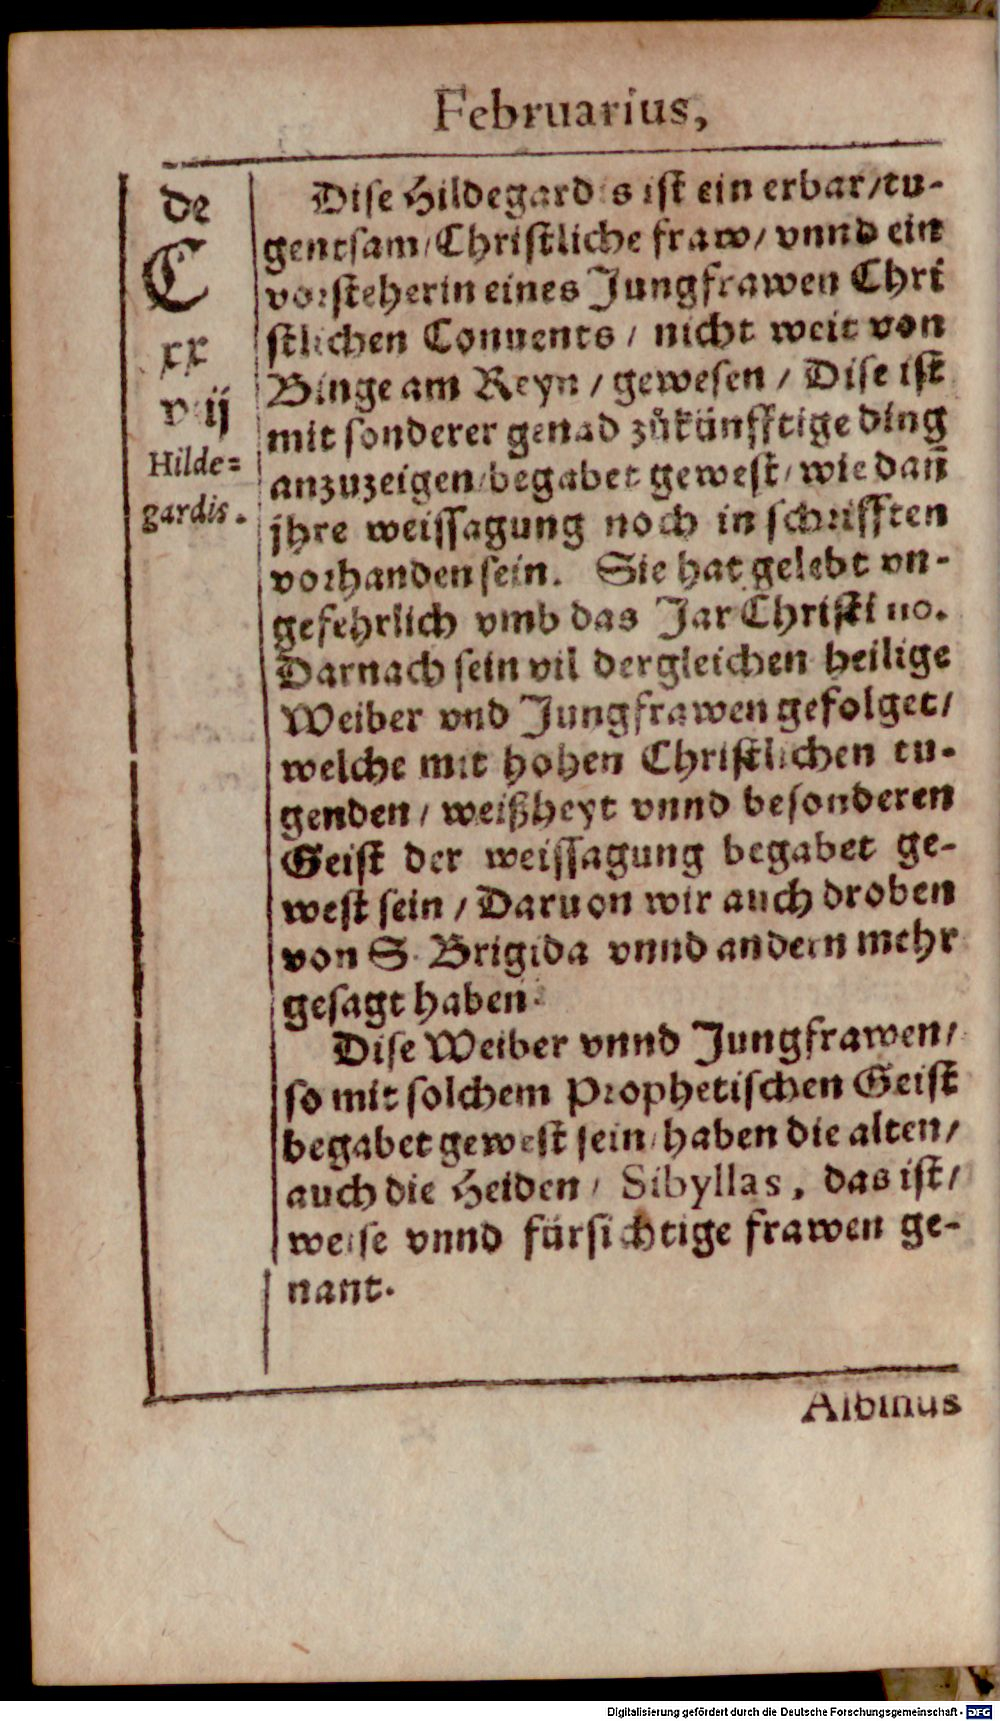 Februarius,
de
C
xx
viij
Hilde=
gardis.
Dise Hildegardis ist ein erbar/tu-
gentsam/Christliche fraw/ vnnd ein
vorsteherin eines Jungfrawen Chri
stlichen Conuents / nicht weit von
Binge am Reyn / gewesen / Dise ist
mit sonderer genad zůkünfftige ding
anzuzeigen/begabet gewest/ wie dañ
jhre weissagung noch in schrifften
vorhanden sein. Sie hat gelebt vn-
gefehrlich vmb das Jar Christi 110.
Darnach sein vil dergleichen heilige
Weiber vnd Jungfrawen gefolget/
welche mit hohen Christlichen tu-
genden / weißheyt vnnd besonderen
Geist der weissagung begabet ge-
west sein / Daruon wir auch droben
von S. Brigida vnnd andern mehr
gesagt haben.
Dise Weiber vnnd Jungfrawen/
so mit solchem Prophetischen Geist
begabet gewest sein/haben die alten/
auch die Heiden / Sibyllas, das ist/
weise vnnd fürsichtige frawen ge-
nant.
Albinus
Digitalisierung gefördert durch die Deutsche Forschungsgemeinschaft - DFG